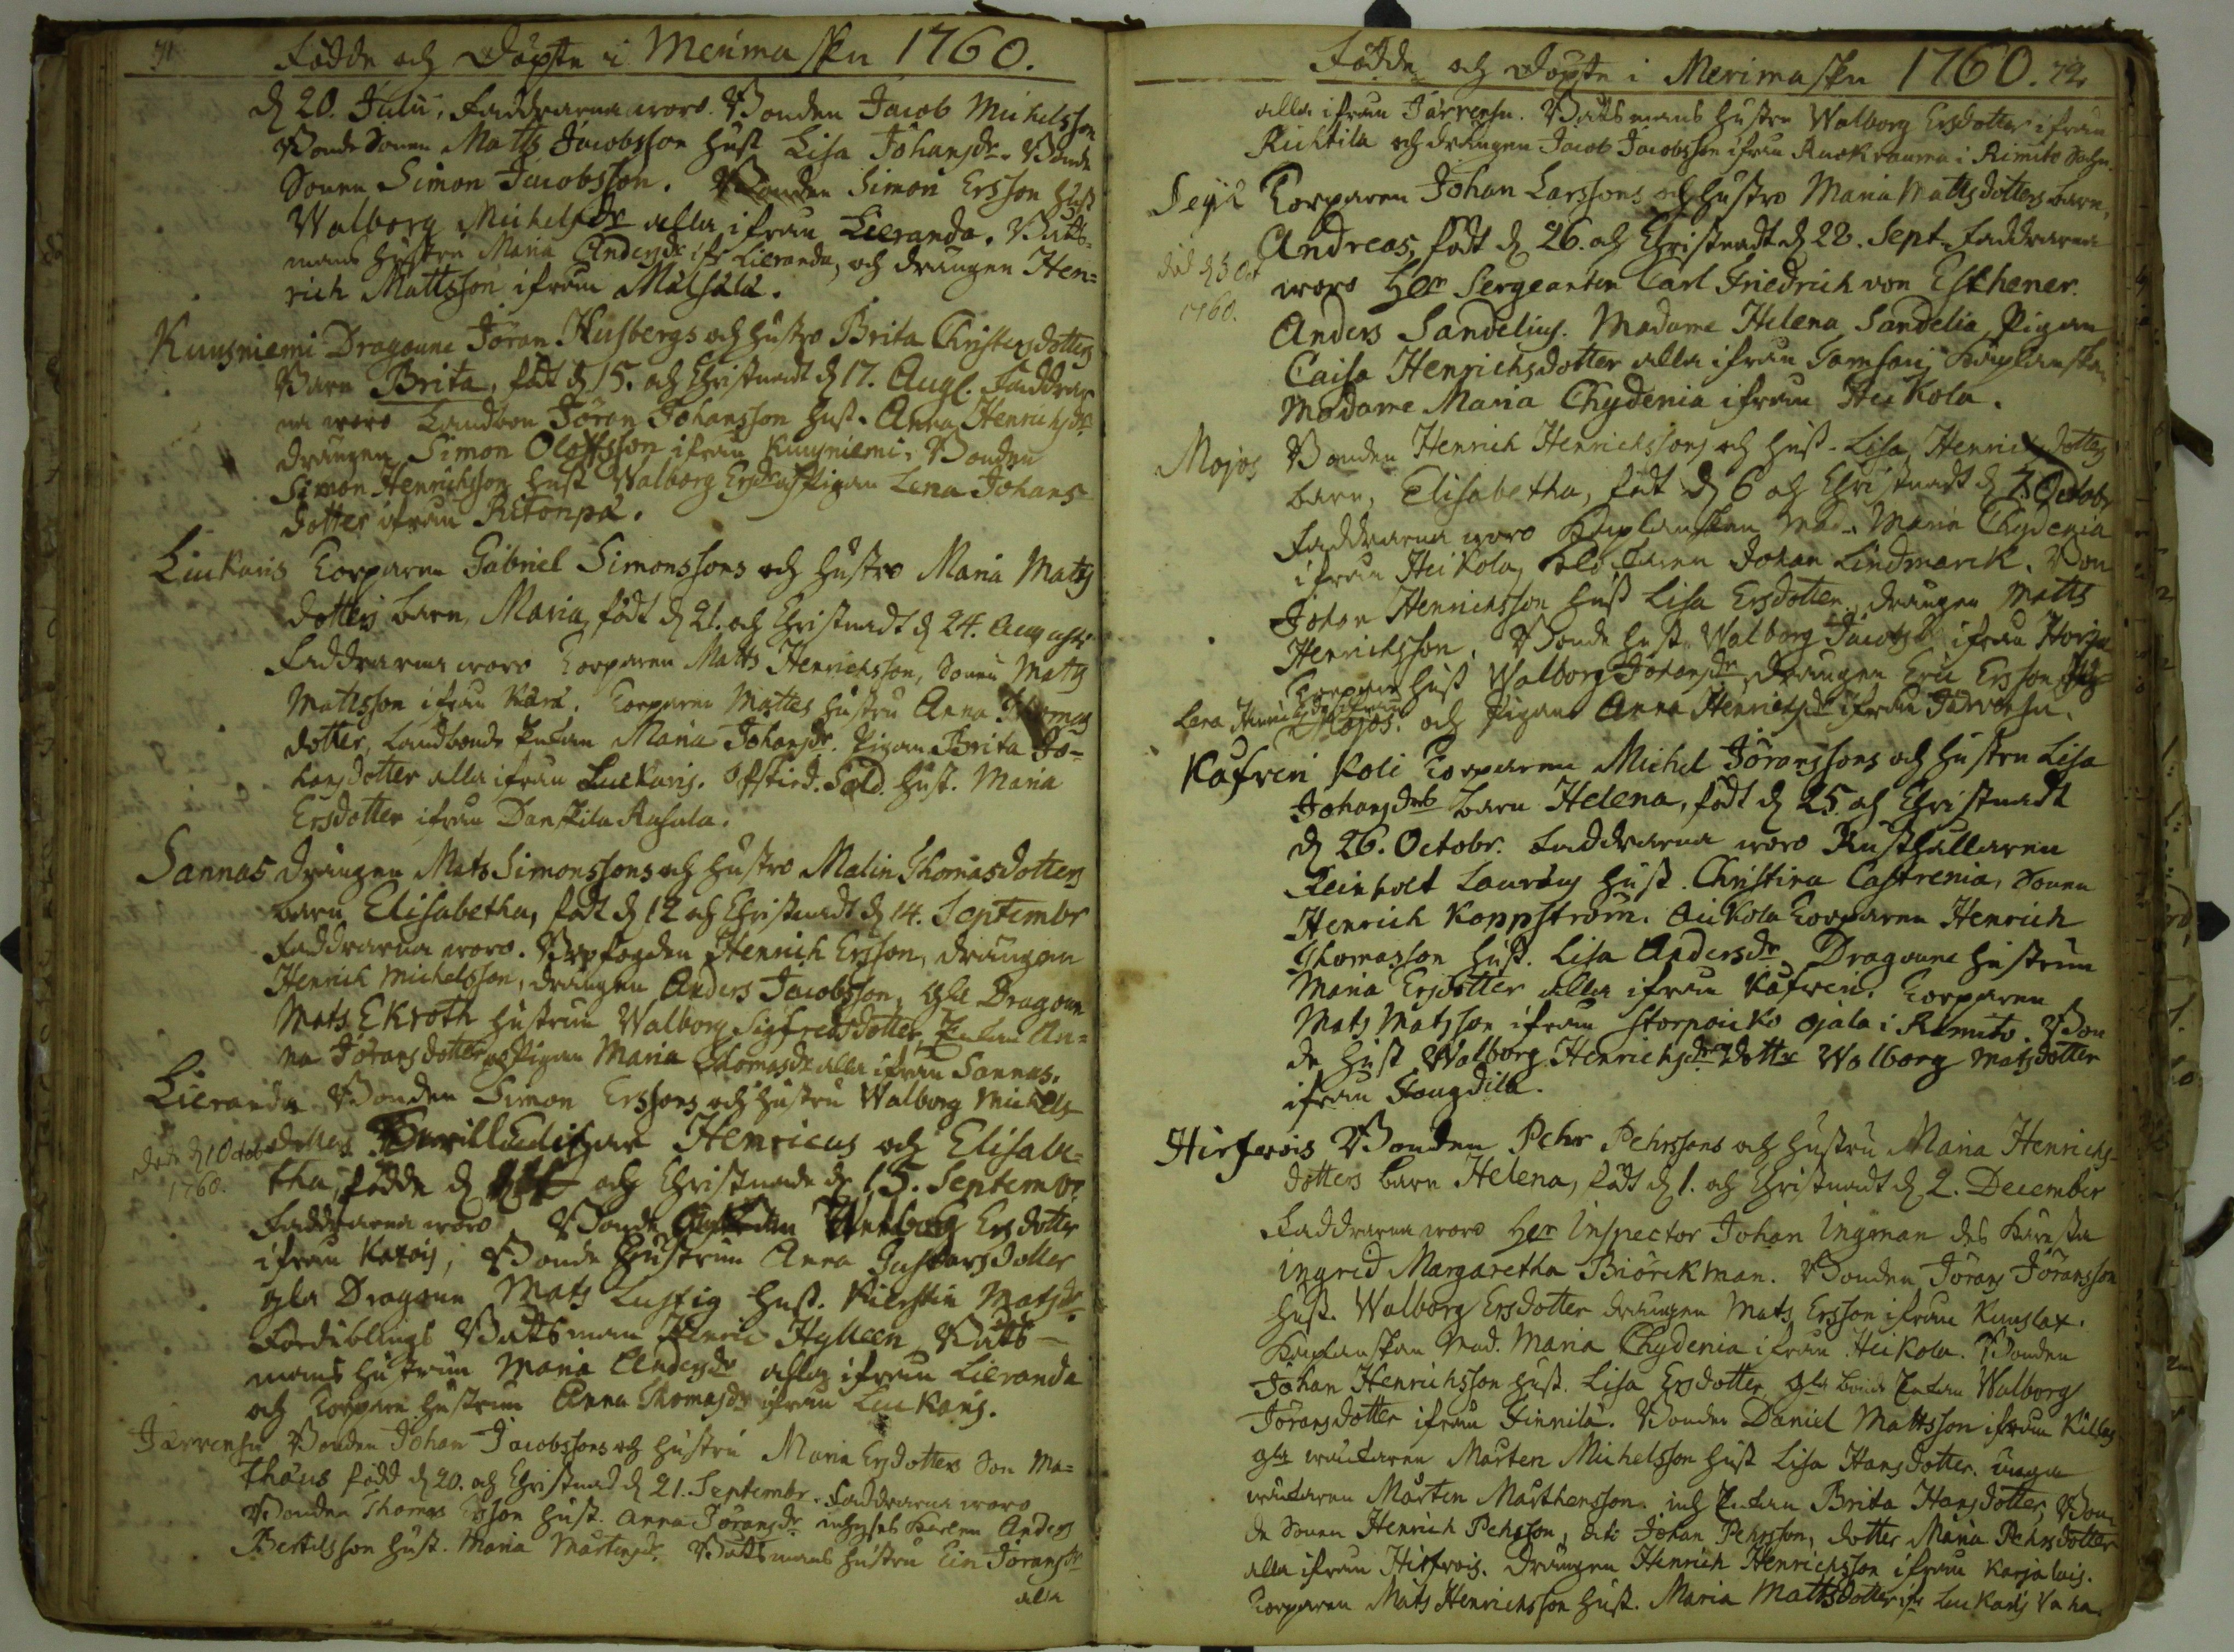 71
Födde och Döpte i Merimasku 1760.
d 20. Julii, Faddrarna woro. Bonden Jacob Michelsson
Bonde Sonen Matts Jacobsson Hust Lisa Johansdr. Bonde
Sonen Simon Jacobsson. Bonden Simon Ersson Hust
Walborg Michelsdr alla ifrån Lieranda. Båtts-
mans Hustru Maria Andersdr ifr Lieranda, och drängen Hen-
rich Mattsson ifrån
Kuusniemi Dragoune Jöran Husbergs och Hustro Brita Christersdotters
Barn Brita, född d 15. och Christnadt d 17. Aug. Faddrar
na woro Landbon Jöran Johansson Hust. Anna Henrichsdr
drängen Simon Oloffsson ifrån Kuusniemi. Bonden
Simon Henrichsson Hust Walborg Ersdr och Pigan Lena Johans-
dotter ifrån Ritonpä.
Liukaris Torparen Gabriel Simonssons och Hustro Maria Mats
dotters barn, Maria, född d 21. och Christnadt d 24. Augusti
Faddrarna woro Torparen Matts Henrichsson, Sonen Mats
Mattsson ifrån Kärä. Torparen Mattes Hustru Anna Thomas
dotter, Landbonde Enkan Maria Johansdr. Pigan Brita Jo-
hansdotter alla ifrån Luukaris. Afskied. Sold. Hust. Maria
Ersdotter ifrån Danskila Rusula.
Sannas drängen Mats Simonssons och Hustro Malin Thomasdotters
barn Elisabetha, född d 12 och Christnadt d 14. Septembr
Faddrarna woro. Henrich Ersson, drängen
Henrich Michelsson, drängen Anders Jacobsson, Gla Dragoun
Mats Ekroth Hustrun Walborg Sigfredsdotter, Enkan An-
na Jöransdotter och Pigan Maria Thomasdr alla ifrån Sannas.
Lieranda Bonden Simon Erssons och Hustru Walborg Michels
döde d 1 Octob 1760.
dotters Henricus och Elisabe-
tha, födde d och Christnade d 15. Septembr
Faddrarna woro Bonde Walborg Ersdotter
ifrån Katois, Bonde Hustrun Anna Gustafsdotter
gla Dragoun Mats Lustig Hust. Kierstin Matsdr
Fördublings Båttsman Henric Hylleen Båtts-
mans Hustrun Maria Andersdr alla ifrån Lieranda
och Torpare Hustrun Anna Thomasdr ifrån Luukaris.
Järvensu Bonden Johan Jacobssons och Hustru Maria Ersdotters Son Ma-
thäus född d 20. och Christnad d 21. Septembr. Faddrarna woro
Bonden Thomas Ersson Hust. Anna Jöransdr inhyses Karlen Anders
Bertilsson Hust. Maria Mårtensdr. Båttsmans Hustru Ein Jöransdr
alla
Födde och Döpte i Merimasku 1760. 72
alla ifrån Järvensu. Båttsmans Hustru Walborg Ersdotter ifrån
Riihtila och drängen Jacob Jacobsson ifrån Ruokrauma i Rimito Sochn.
Seyis Torparen Johan Larssons och Hustro Maria Mattsdotters barn,
Andreas, född d 26. och Christnadt d 28. Sept. Faddrarna
död d 5 Oct 1760.
woro Herr Sergeanten Carl Friedrich von Esthener.
Anders Sandelius. Madame Helena Sandelia, Pigan
Caisa Henrichsdotter alla ifrån Kaplanskan
Madame Maria Chydenia ifrån Heikola.
Mojos Bonden Henrich Henrichssons och Hust. Lisa Henrichsdotters
barn, Elisabetha, född d 6 och Christnadt d 7. Octobr
Faddrarna woro Kaplanskan Mad. Maria Chydenia
ifrån Heikola, Klockaren Johan Lindmarck. Bon
Johan Henrichsson Hust Lisa Ersdotter, drängen Matts
Henrichsson. Bonde Hust. Walborg Jacobsdr ifrån
Torpare Hust Walborg Johansdr, drängen Eric Ersson,
Lena Henrichsdr ifrån Mojos. och Pigan Anna Henrichsdr ifrån Järvensu.
Kafreri Koli Torparen Michel Jöranssons och Hustru Lisa
Johansdrs barn Helena, född d 25. och Christnadt
d 26. Octobr. Faddrarna woro Rusthållaren
Reinholt Hust. Christina Castrenia, Sonen
Henrich Koppström. Torparen Henrich
Thomasson Hust. Lisa Andersdr, Dragoune Hustrun
Maria Ersdotter alla ifrån Kafreri. Torparen
Mats Matsson ifrån ojala i Rimito. Bon
de Hust Walborg Henrichsdr och dottr Walborg Matsdotter
ifrån
Hirfwois Bonden Pehr Pehrssons och Hustru Maria Henrichs-
dotters barn Helena, född d 1. och Christnadt d 2. December
Faddrarna woro Herr Inspector Johan Ingman des Käresta
Ingrid Margaretha Biörckman. Bonden Jöran Jöransson
Hust. Walborg Ersdotter drängen Mats Ersson ifrån Kuuslax.
Kaplanskan Mad. Maria Chydenia ifrån Heikola. Bonden
Johan Henrichsson Hust. Lisa Ersdotter, gla bonde Enkan Walborg
Jöransdotter ifrån Finnilä. Bonden Daniel Mattsson ifrån Killas
gla Mårten Michelsson Hust Lisa Hansdotter. unga
Mårten Mårthensson. inh Enkan Brita Hansdotter, Bon-
de Sonen Henrich Pehrsson, dito Johan Pehrsson, dotter Maria Pehrsdotter
alla ifrån Hirfwois. Drängen Henrich Henrichsson ifrån Karjalais.
Torparen Mats Henrichsson Hust. Maria Mattsdotter ifr Luukaris Vaha.